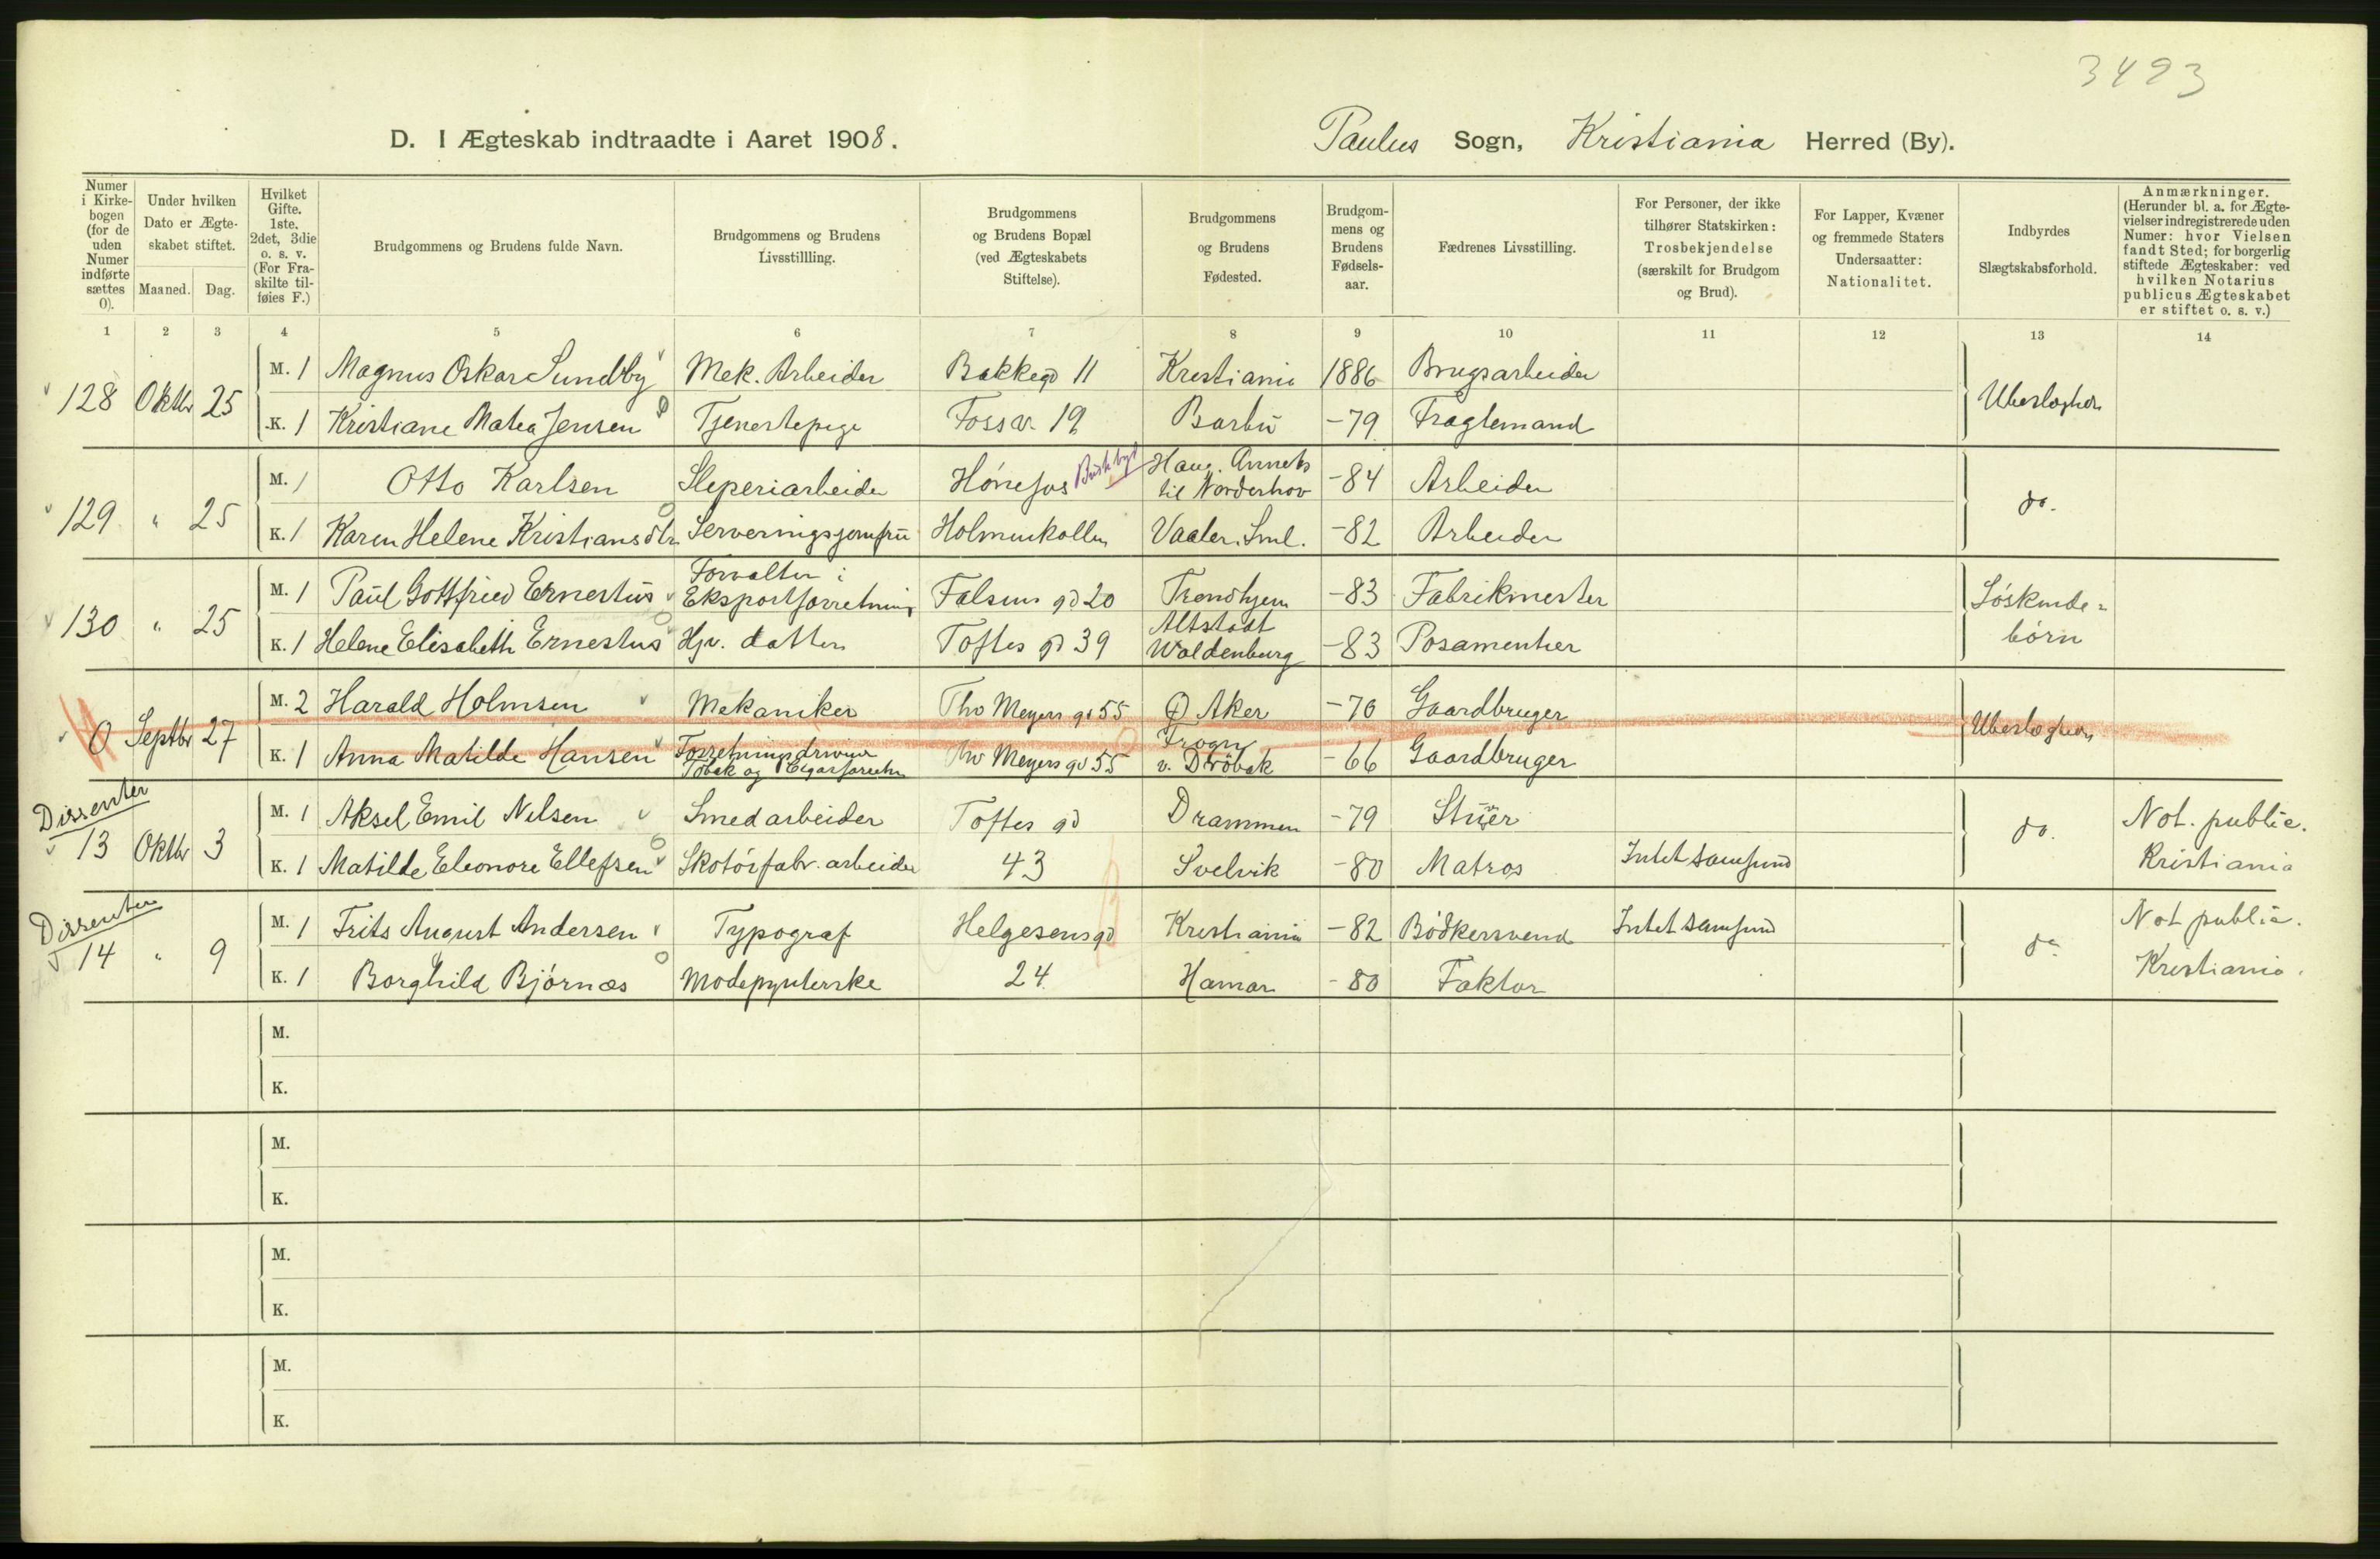 3493
D. I Ægteskab indtraadte i Aaret 1908.
Paulus Sogn, Kristiania Herred (By).
Numer i Kirkebogen (for de uden Numer indførte sættes 0).
Under hvilken Dato er Ægteskabet stiftet.
Maaned. Dag.
Hvilket Gifte. 1ste, 2det, 3die o. s. v. (For Fraskilte tilføies F.)
Brudgommens og Brudens fulde Navn.
Brudgommens og Brudens Livsstillling.
Brudgommens og Brudens Bopæl (ved Ægteskabets Stiftelse).
Brudgommens og Brudens Fødested.
Brudgommens og Brudens Fødselsaar.
Fædrenes Livsstilling.
For Personer, der ikke tilhører Statskirken: Trosbekjendelse (særskilt for Brudgom og Brud).
For Lapper, Kvæner og fremmede Staters Undersaatter: Nationalitet.
Indbyrdes Slægtskabsforhold.
Anmærkninger. (Herunder bl. a. for Ægtevielser indregistrerede uden Numer: hvor Vielsen fandt Sted; for borgerlig stiftede Ægteskaber: ved hvilken Notarius publicus Ægteskabet er stiftet o. s. v.)
1 2 3 4 5 6 7 8 9 10 11 12 13 14
M. 1 Magnus Oskar Sundby Mek. Arbeider Bakkegd 11 Kristiania 1886 Brugsarbeider
128 Oktbr 25 Ubeslægtet
K. 1 Kristiane Matea Jensen Tjenestepige Fossv. 19 Barbu -79 Fragtemand
M. 1 Otto Karlsen Sleperiarbeider Hönefos Buskbyd Haug. Anneks til Norderhov -84 Arbeider
129 " 25 do.
K. 1 Karen Helene Kristiansdtr Serveringsjomfru Holmenkollen Vaaler. Sml. -82 Arbeider
M. 1 Paul Gottfried Ernestus Forvalter i Eksportforretning Falsens gd 20 Trondhjem -83 Fabrikmester
130 " 25 Söskendebörn
K. 1 Helene Elisabeth Ernestus Hjv. datter Toftes gd 39 Altstadt Waldenburg -83 Posamentier
M. 2 Harald Holmsen Mekaniker Thv Meyers gd 55 Ø Aker -70 Gaardbruger
0 Septbr 27 Ubeslægtet
K. 1 Anna Matilde Hansen Forretningsdrivende Tobak og Cigarforretn Thv Meyers gd 55 Frogn v. Dröbak -66 Gaardbruger
Dissenter
M. 1 Aksel Emil Nilsen Smedarbeider Toftes gd Drammen -79 Stuer Not. public.
13 Oktbr 3 do.
K. 1 Matilde Eleonore Ellefsen Skotöifabr. arbeider 43 Svelvik -80 Matros Intet samfund Kristiania
Dissenter
M. 1 Frits August Andersen Typograf Helgesens gd Kristiania -82 Bödkersvend Intet samfund Not public.
14 " 9 do
K. 1 Borghild Björnæs Modepynterske 24 Hamar -80 Faktor Kristiania.
M.
K.
M.
K.
M.
K.
M.
K.